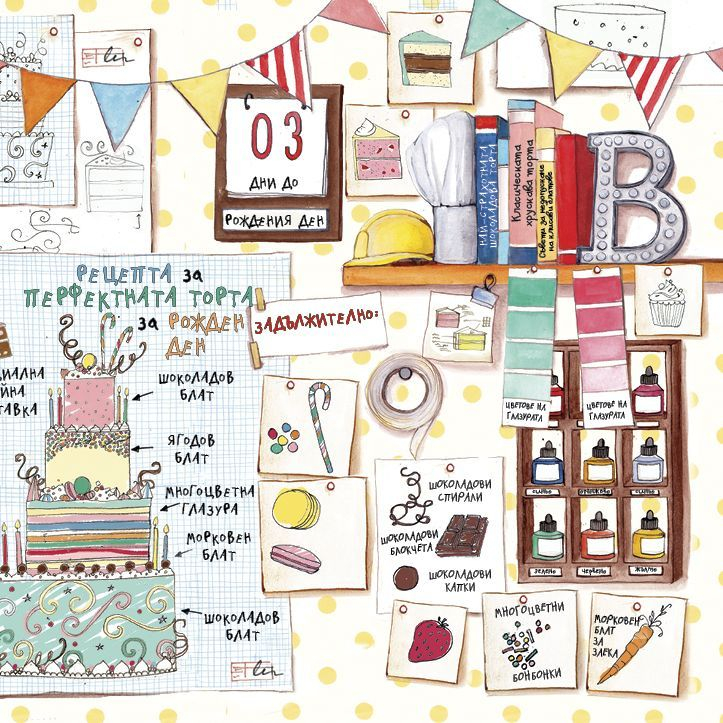 03
ДНИ ДО
РОЖДЕНИЯ ДЕН
НАЙ-СТРАХОТНАТА
ШОКОЛАДОВА ТОРТА
Класическата
хрускава торта
Съвети за недопускане
на клисави блатове
B
РЕЦЕПТА за
ПЕРФЕКТНАТА ТОРТА
за РОЖДЕН
ДЕН
ШОКОЛАДОВ
БЛАТ
ЯГОДОВ
БЛАТ
МНОГОЦВЕТНА
ГЛАЗУРА
МОРКОВЕН
БЛАТ
ШОКОЛАДОВ
БЛАТ
ЗАДЪЛЖИТЕЛНО:
ЦВЕТОВЕ НА
ГЛАЗУРАТА
ЦВЕТОВЕ НА
ГЛАЗУРАТА
СИНЬО
ОРАНЖЕВО
СИНЬО
ЗЕЛЕНО
ЧЕРВЕНО
ЖЪЛТО
ШОКОЛАДОВИ
СПИРАЛИ
ШОКОЛАДОВИ
БЛОКЧЕТА
ШОКОЛАДОВИ
КАПКИ
МНОГОЦВЕТНИ
БОНБОНКИ
МОРКОВЕН
БЛАТ
ЗА
ЗАЕКА